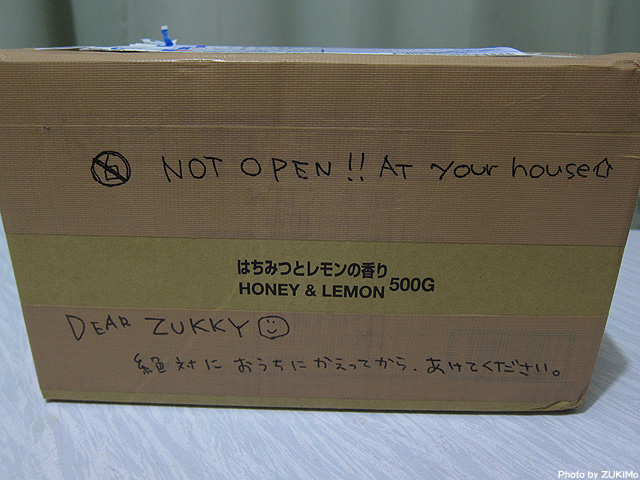 NOT OPEN!! AT your house
はちみつとレモンの香り
HONEY & LEMON 500G
DEAR ZUKKY
絶対に おうちに かえってから、あけてください。
Photo by ZUKIMo